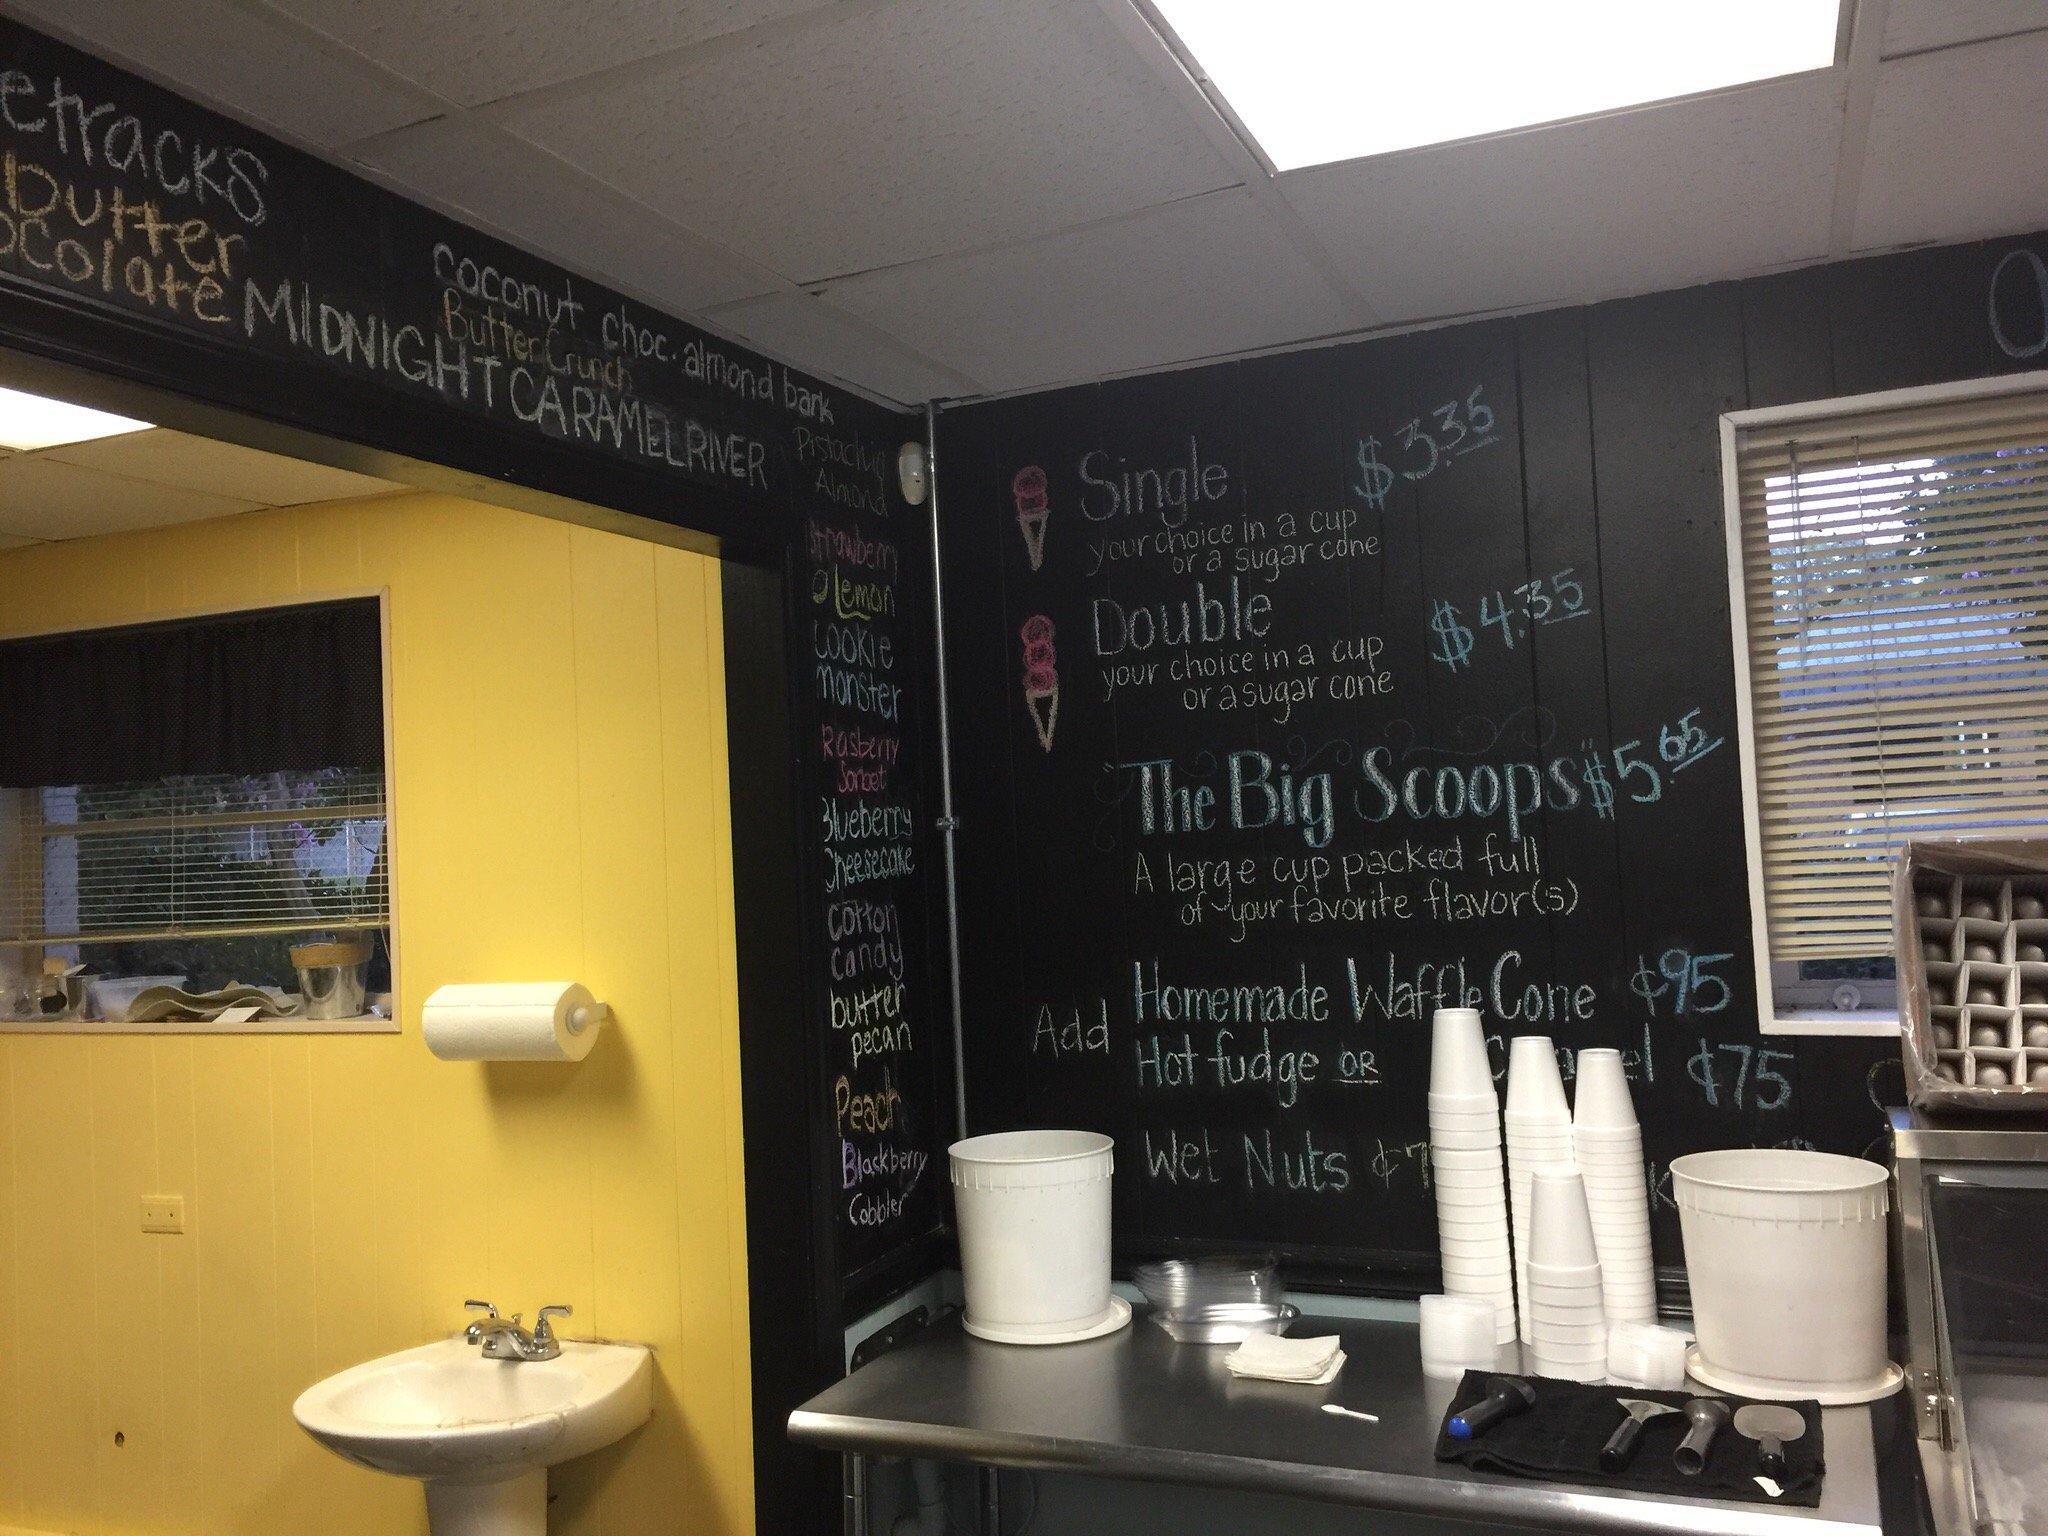 etracks
butter
ocolate
MIDNIGHT CARAMEL RIVER
coconut choc. almond bark
Butter Crunch
Pistachio
Almond
Strawberry
Lemon
COOKIE
monster
Rasberry
Sorbet
Blueberry
Cheesecake
cotton
candy
butter
pecan
Peach
Blackberry
Cobbler
Single $3.35
your choice in a cup
or a sugar cone
Double $4.35
your choice in a cup
or a sugar cone
"The Big Scoops" $5.65
A large cup packed full
of your favorite flavor(s)
Add
Homemade Waffle Cone ¢95
Hot fudge OR C el ¢75
Wet Nuts ¢7